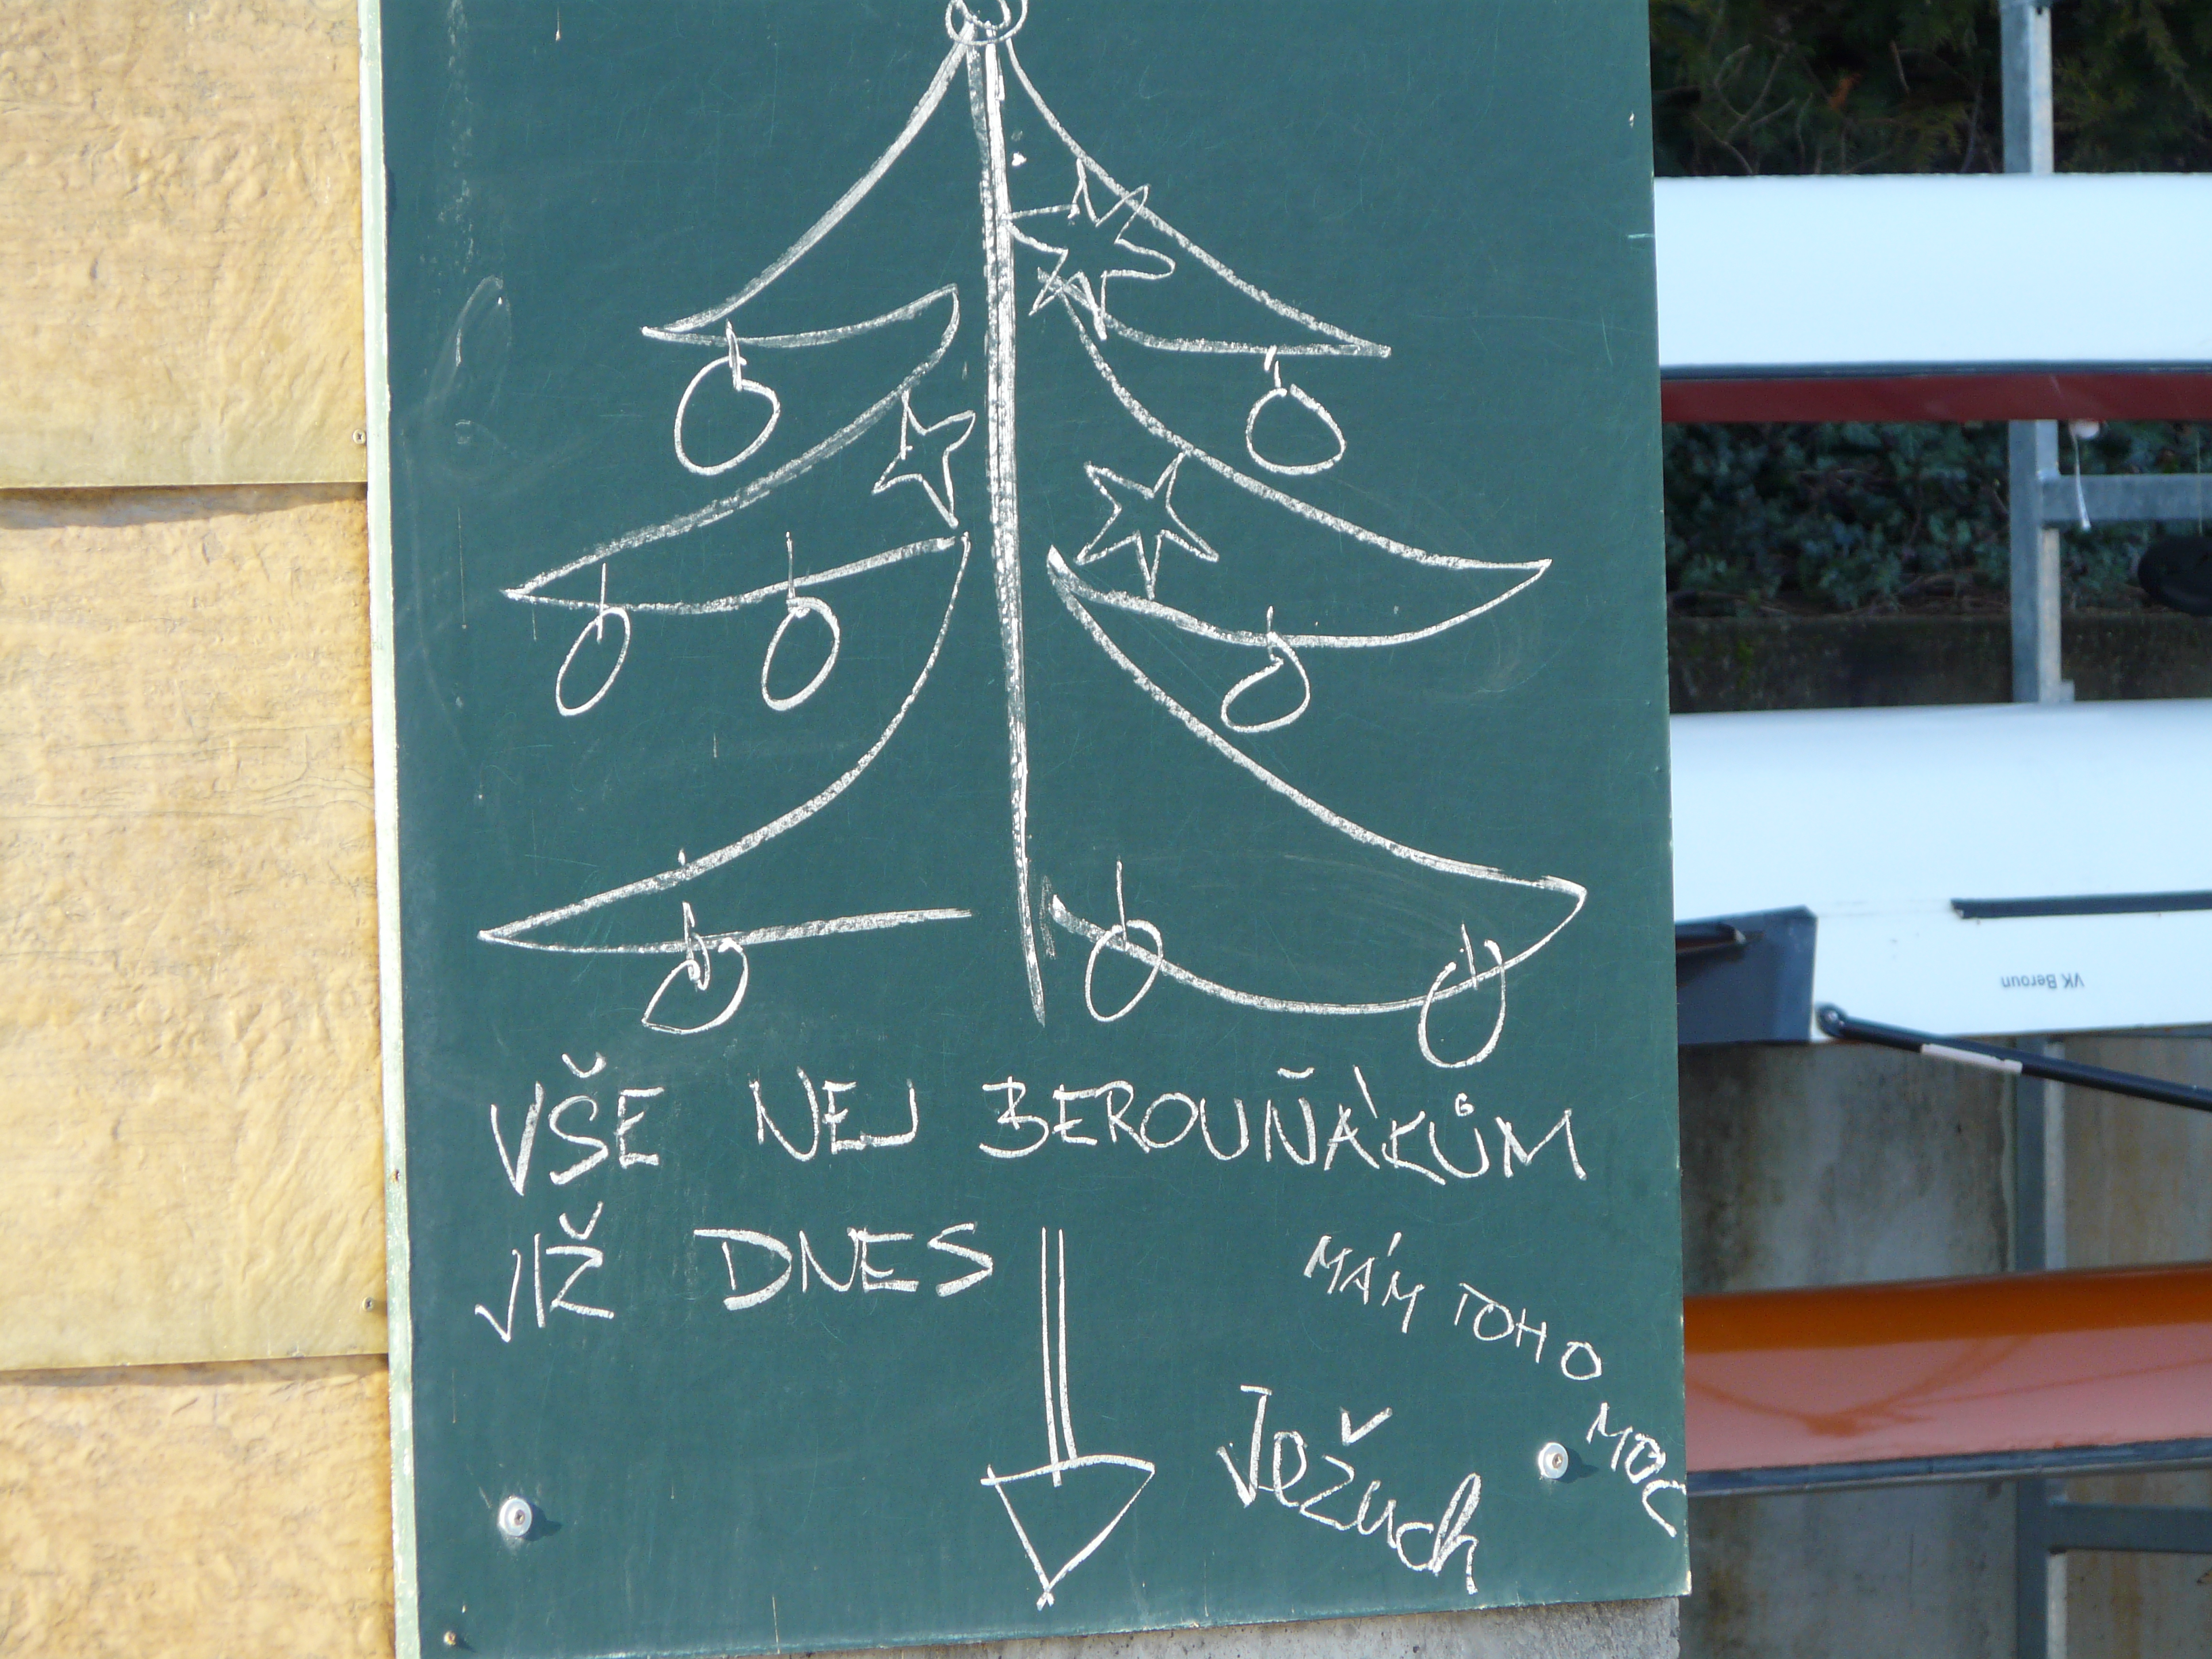 VŠE NEJ BEROUŇÁKŮM
JIŽ DNES
MÁM TOHO MOC
Ježuch
VK Beroun